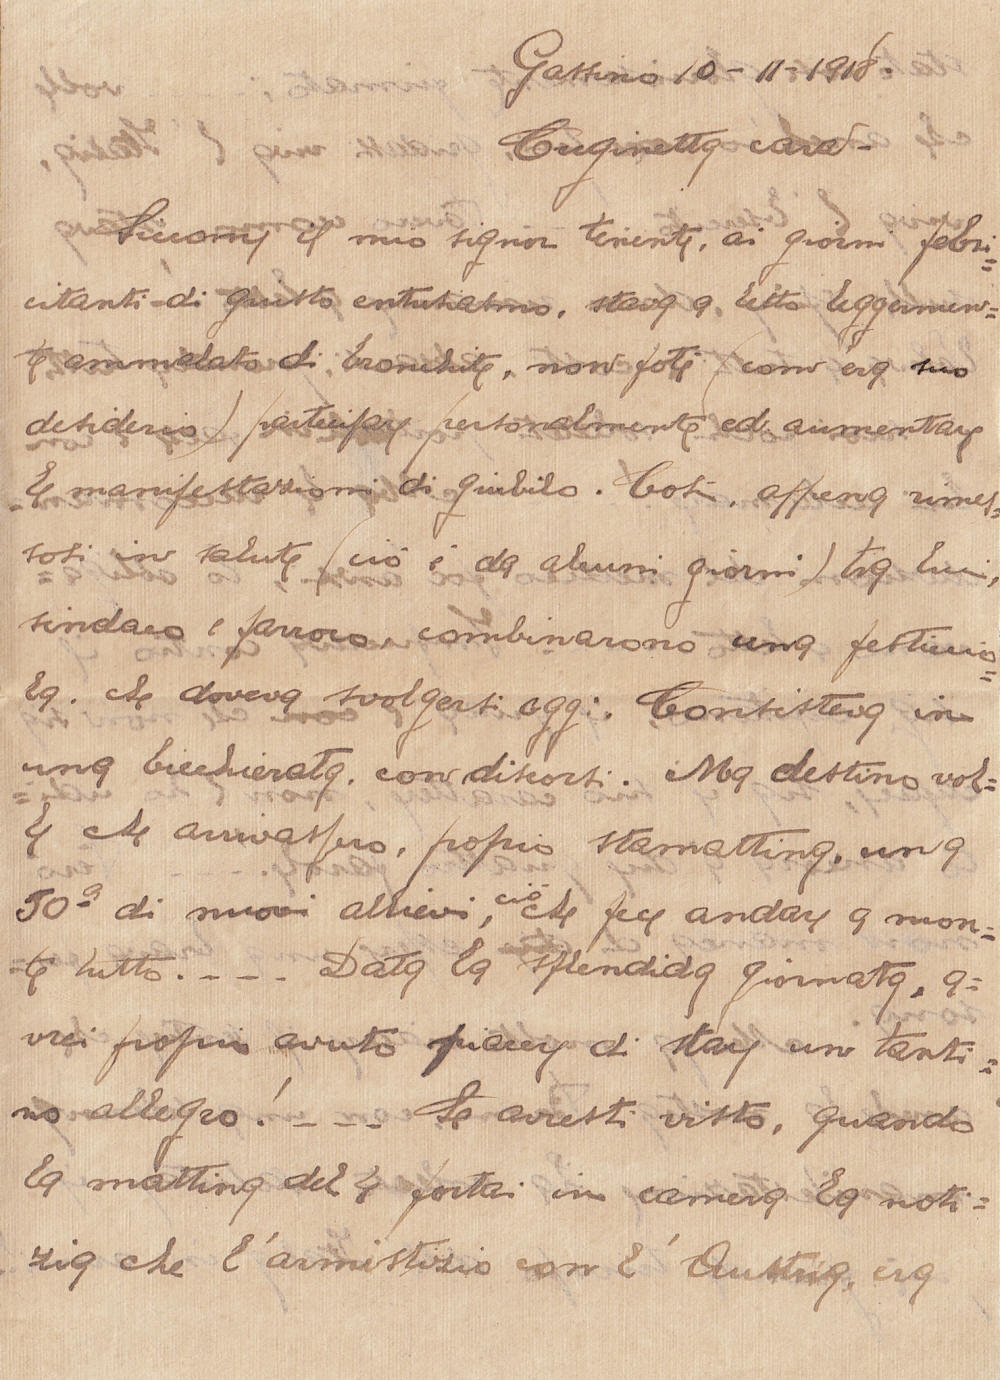 Gassino 10-11-1918.
Cuginetta cara-
Siccome il mio signor tenente, ai giorni febri=
citanti di giusto entusiasmo, stava a letto leggermen=
te ammalato di bronchite, non poté (com'era suo
desiderio) participare personalmente ed aumentare
le manifestazioni di giubilo. Così, appena rimes=
sosi in salute (ciò è da alcuni giorni) tra lui,
sindaco e parroco, combinarono una festiccio=
la. che doveva svolgersi oggi. Consisteva in
una bicchierata, con discorsi. Ma destino vol=
le che arrivassero, proprio stamattina, una
50ª di nuovi allievi, ciò che fece andare a mon=
te tutto.---- Data la splendida giornata, a=
vrei proprio avuto piacere di stare un tanti=
no allegro!---- Se avresti visto, quando
la mattina del 4 portai in camera la noti=
zia che l'armistizio con l'Austria, era